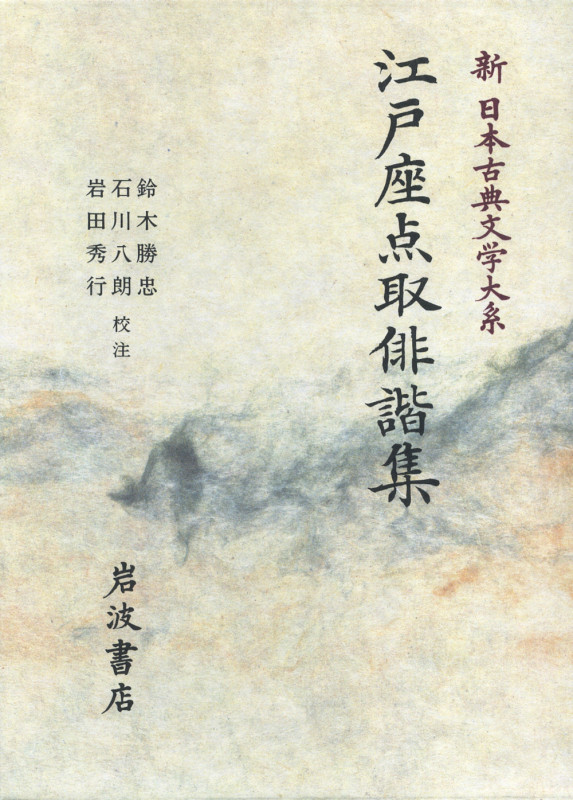 新 日本古典文学大系
江戸座点取俳諧集
鈴木勝忠
石川八朗 校注
岩田秀行
岩波書店